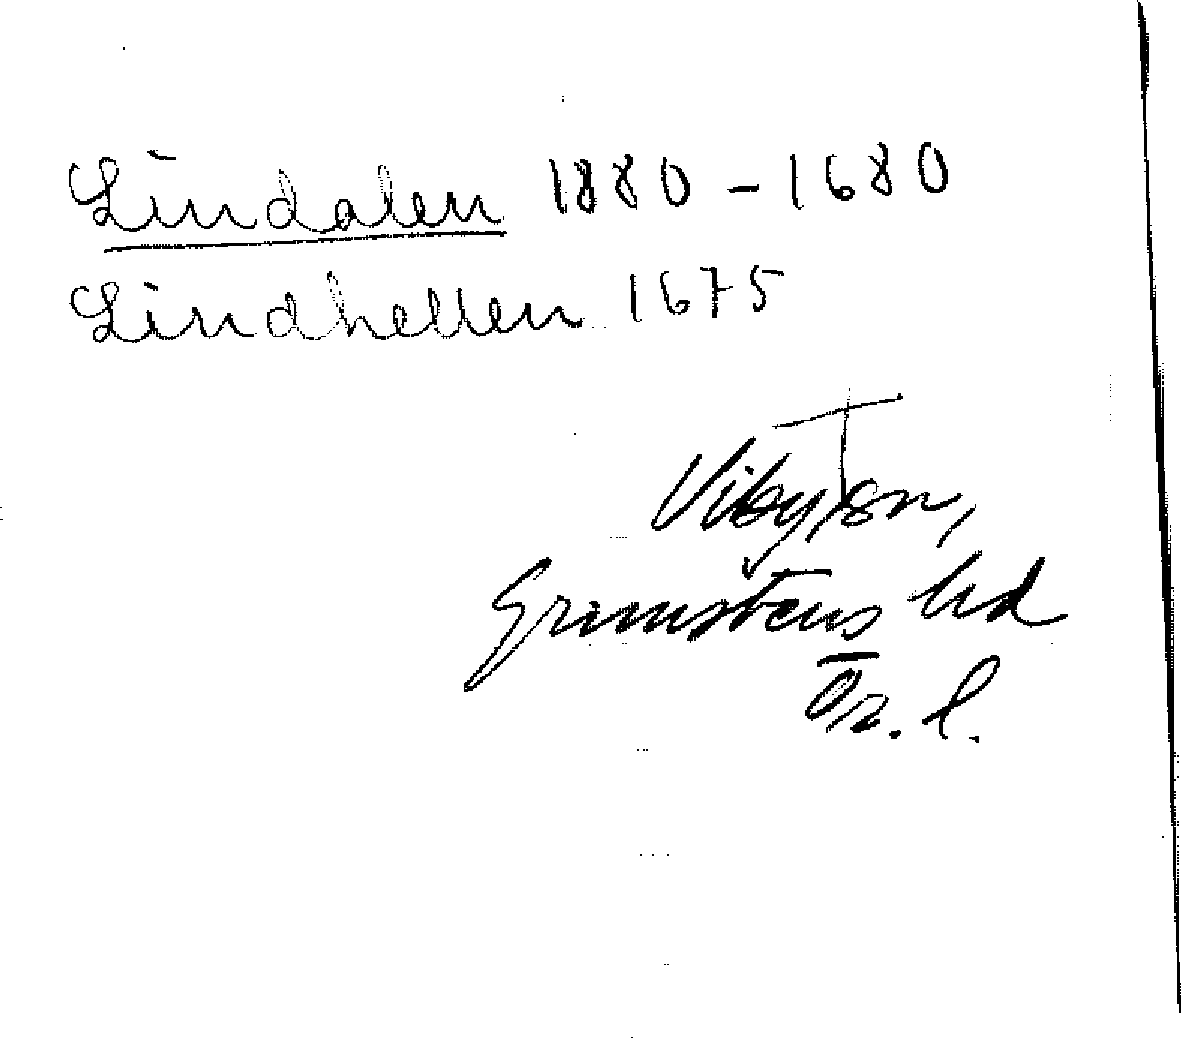 Lindalen 1880 - 1680
Lindhellen 1675
Viby sn,
Grimstens hd
Ör. l.